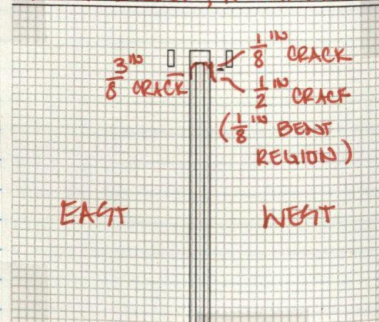 1/8 IN CRACK
3/8 IN CRACK
1/2 IN CRACK
(1/8 IN BENT
REGION)
EAST
WEST